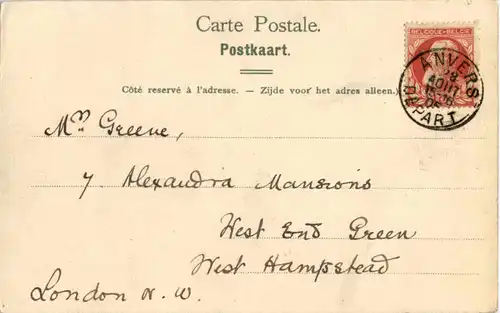 Carte Postale.
Postkaart.
BELGIQUE·BELGIË
ANVERS
AOUT
DEPART
Côté reservé à l'adresse. — Zijde voor het adres alleen.
Mrs Greene,
7 Alexandra Mansions
West End Green
West Hampstead
London N. W.